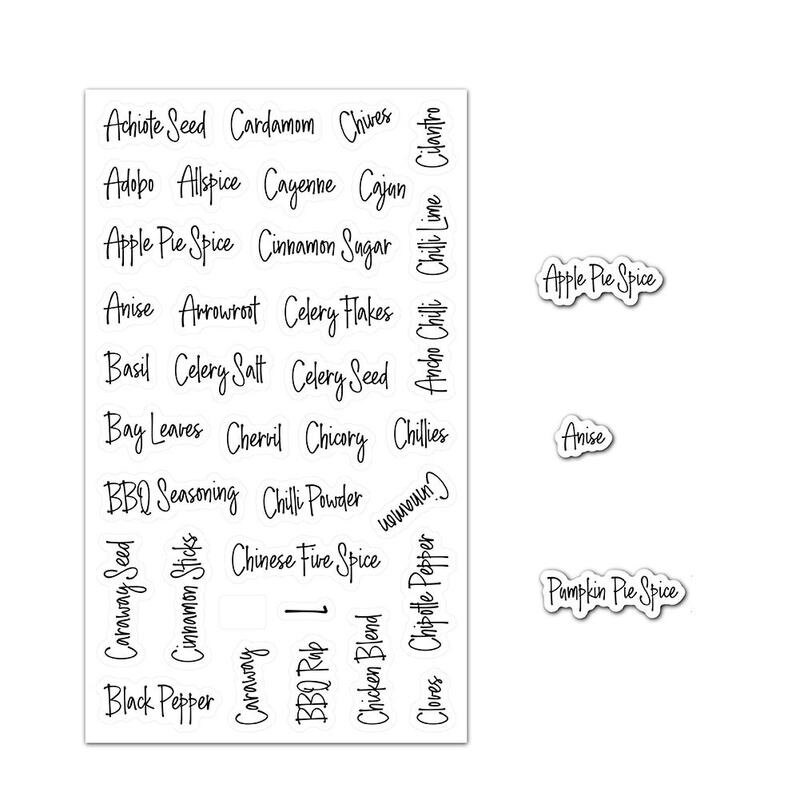 Achiote Seed
Cardamom
Chives
Cilantro
Adobo
Allspice
Cayenne
Cajun
Chilli Lime
Apple Pie Spice
Cinnamon Sugar
Anise
Arrowroot
Celery Flakes
Ancho Chilli
Basil
Celery Salt
Celery Seed
Bay Leaves
Chervil
Chicory
Chillies
BBQ Seasoning
Chilli Powder
Cinnamon
Caraway Seed
Cinnamon Sticks
Chinese Five Spice
Chipotle Pepper
1
Black Pepper
Caraway
BBQ Rub
Chicken Blend
Cloves
Apple Pie Spice
Anise
Pumpkin Pie Spice